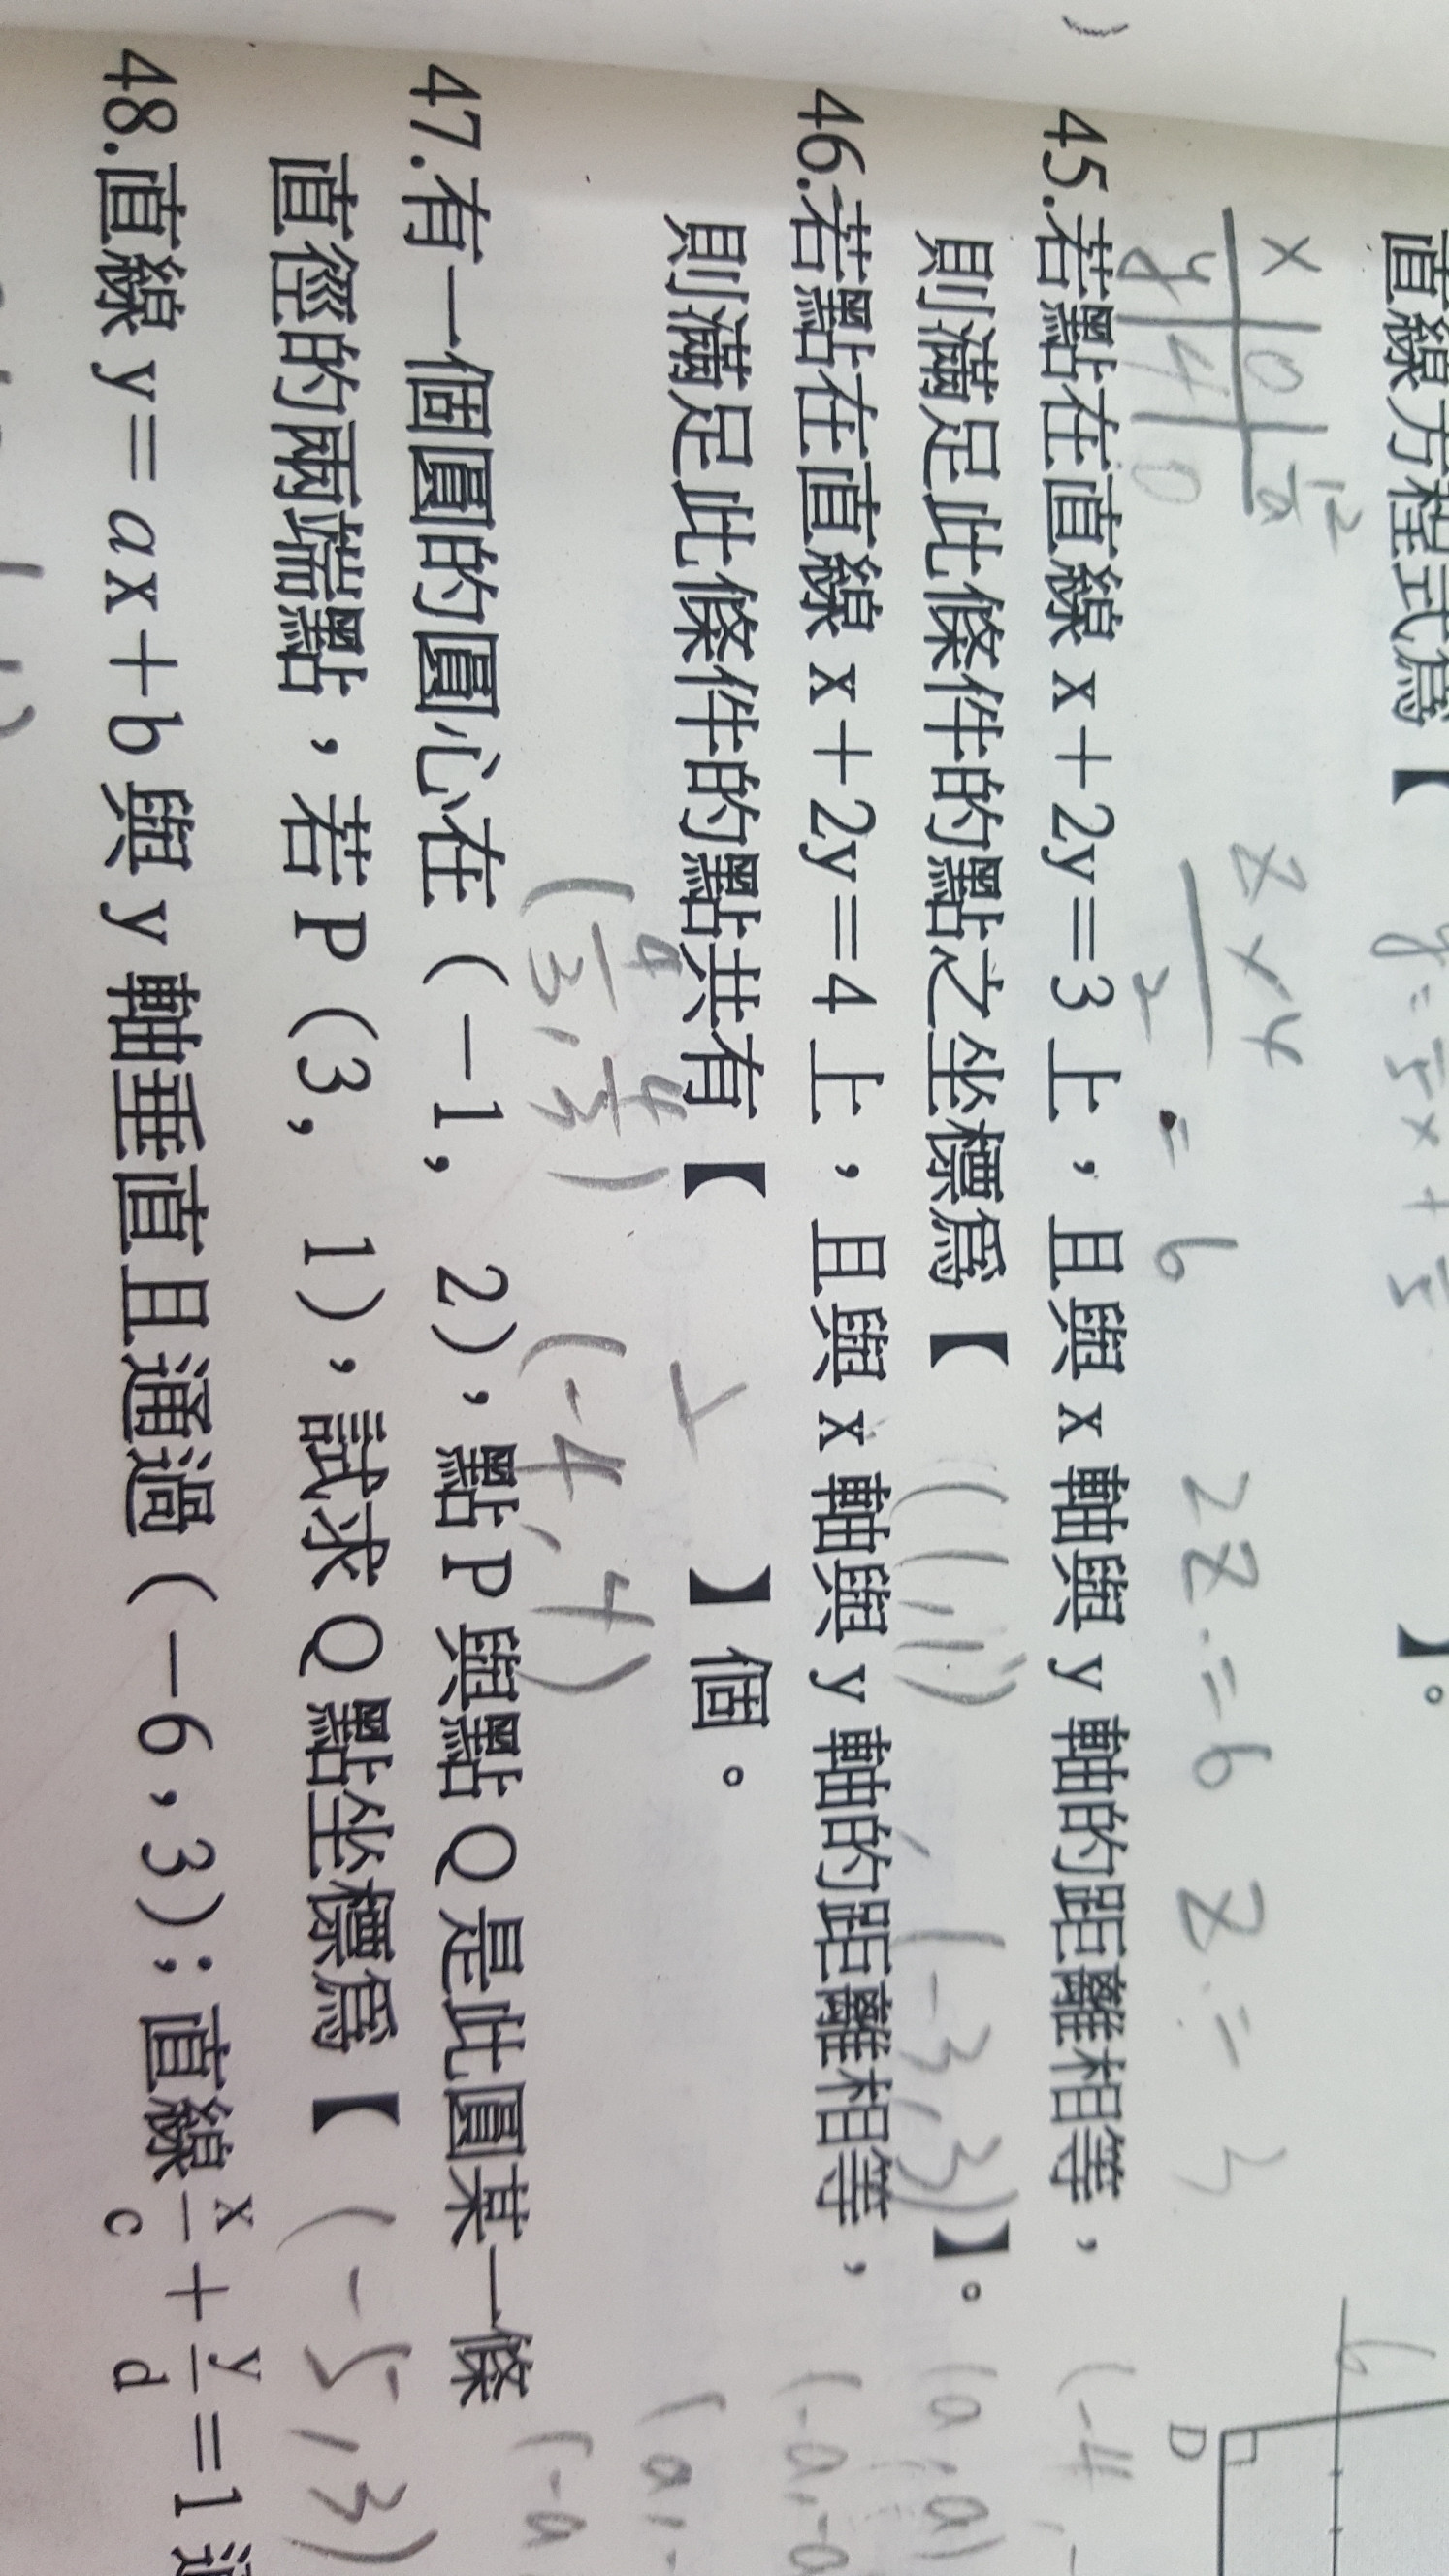 直線方程式為【 】。
y=
x 0 12/a
y 4 0
z×4/2=6 2z=6 z=3
45.若點在直線 x+2y=3 上，且與 x 軸與 y 軸的距離相等，
則滿足此條件的點之坐標為【 (1,1), (-3,3) 】。
46.若點在直線 x+2y=4 上，且與 x 軸與 y 軸的距離相等，
則滿足此條件的點共有【 2 】個。
(4/3, 4/3) (-4, 4)
47.有一個圓的圓心在（－1，2），點 P 與點 Q 是此圓某一條
直徑的兩端點，若 P（3，1），試求 Q 點坐標為【 (-5,3)
48.直線 y=ax+b 與 y 軸垂直且通過（－6，3）；直線 x/c + y/d =1
D
(-4,
(a,a)
(-a,-a
(a,-
(-a